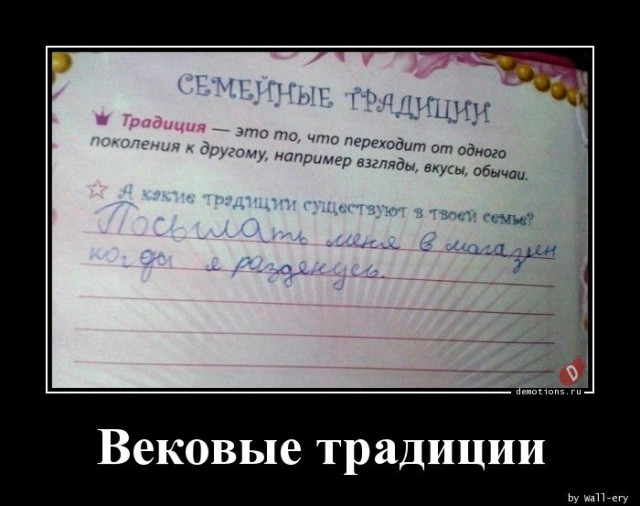 СЕМЕЙНЫЕ ТРАДИЦИИ
Традиция — это то, что переходит от одного
поколения к другому, например взгляды, вкусы, обычаи.
А какие традиции существуют в твоей семье?
Посылать меня в магазин
когды я разденусь.
D
demotions.ru
Вековые традиции
by wall-ery